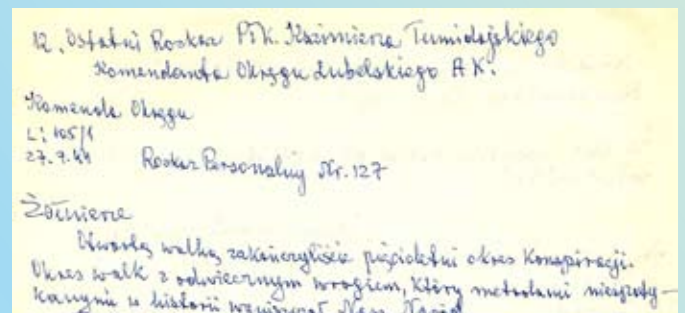 12. Ostatni Rozkaz Płk. Kazimierza Tumidajskiego
Komendanta Okręgu Lubelskiego A K.
Komenda Okręgu
L: 105/1
27.7.44 Rozkaz Personalny Nr. 127
Żołnierze
Otwartą walką zakończyliście pięcioletni okres Konspiracji.
Okres walk z odwiecznym wrogiem, który metodami niespoty-
kanymi w historii wyniszczał Nasz Naród